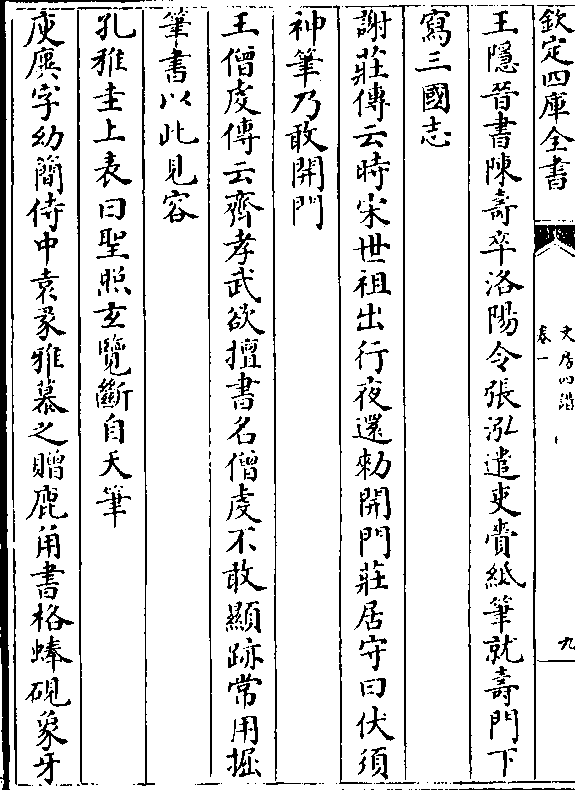 欽定四庫全書
文房四譜
卷一
九
王隱晉書陳壽卒洛陽令張泓遣吏賫紙筆就壽門下
寫三國志
謝莊傳云時宋世祖出行夜還勑開門莊居守曰伏須
神筆乃敢開門
王僧虔傳云齊孝武欲擅書名僧虔不敢顯跡常用掘
筆書以此見容
孔稚圭上表曰聖照玄覽斷自天筆
庾廙字幼簡侍中袁彖雅慕之贈鹿角書格蜯硯象牙